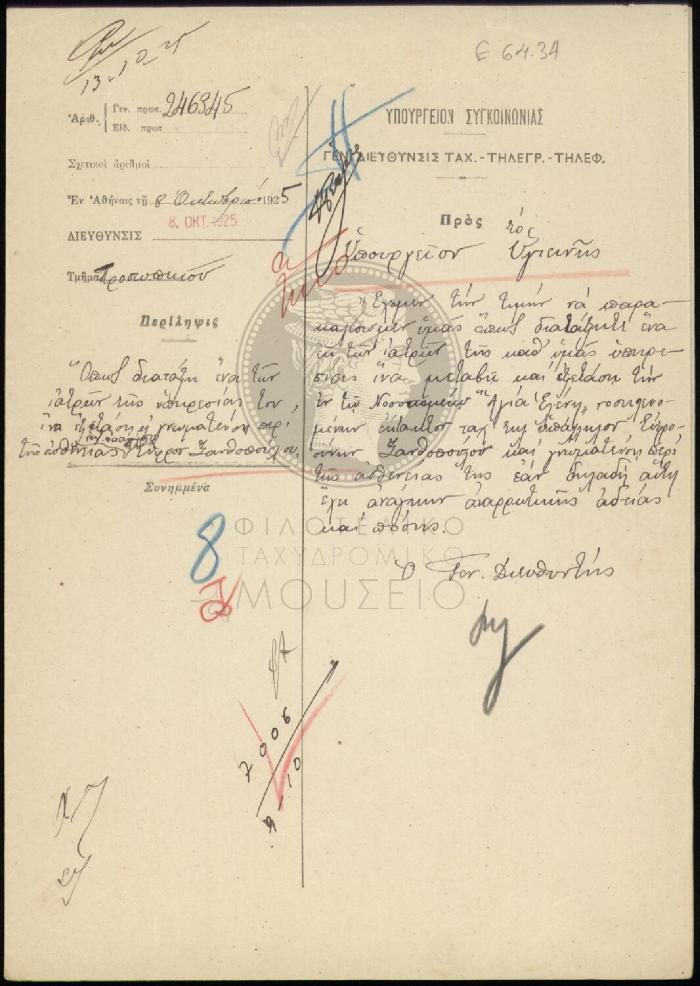 13.10.25
E 64.34
Ἀριθ. Γεν. πρωτ. 246345
Εἰδ. πρωτ
Σχετικοί ἀριθμοί
Ἐν Ἀθήναις τῇ 8 Ὀκτωβρίου 1925
8. ΟΚΤ. 1925
ΔΙΕΥΘΥΝΣΙΣ
Τμῆμα Προσωπικοῦ
Περίληψις
Ὅπως διατάξῃ ἕνα τῶν
ἰατρῶν τῆς ὑπηρεσίας του,
ἵνα ἐξετάσῃ & γνωματεύσῃ περί
τῆς ἀσθενείας Ξανθοπούλου
Συνημμένα
ΥΠΟΥΡΓΕΙΟΝ ΣΥΓΚΟΙΝΩΝΙΑΣ
ΓΕΝ. ΔΙΕΥΘΥΝΣΙΣ ΤΑΧ.-ΤΗΛΕΓΡ.-ΤΗΛΕΦ.
Πρὸς τὸ
Ὑπουργεῖον Ὑγιεινῆς
Ἔχομεν τὴν τιμὴν νὰ παρα-
καλέσωμεν ὑμᾶς ὅπως διατάξητε ἕνα
ἐκ τῶν ἰατρῶν τῆς καθ' ὑμᾶς ὑπηρε-
σίας ἵνα μεταβῇ καὶ ἐξετάσῃ τὴν
ἐν τῷ Νοσοκομείῳ "Ἁγία Ἑλένη" νοσηλευο-
μένην ὑπάλληλον Εὐφρο-
σύνην Ξανθοπούλου καὶ γνωματεύσῃ περὶ
τῆς ἀσθενείας της ἐὰν δηλαδὴ αὕτη
ἔχῃ ἀνάγκην ἀναρρωτικῆς ἀδείας
καὶ πόσης.
Ὁ Γεν. Διευθυντής
ΦΙΛΟΤΕΛΙΚΟ
ΤΑΧΥΔΡΟΜΙΚΟ
ΜΟΥΣΕΙΟ
8
7006
9.10